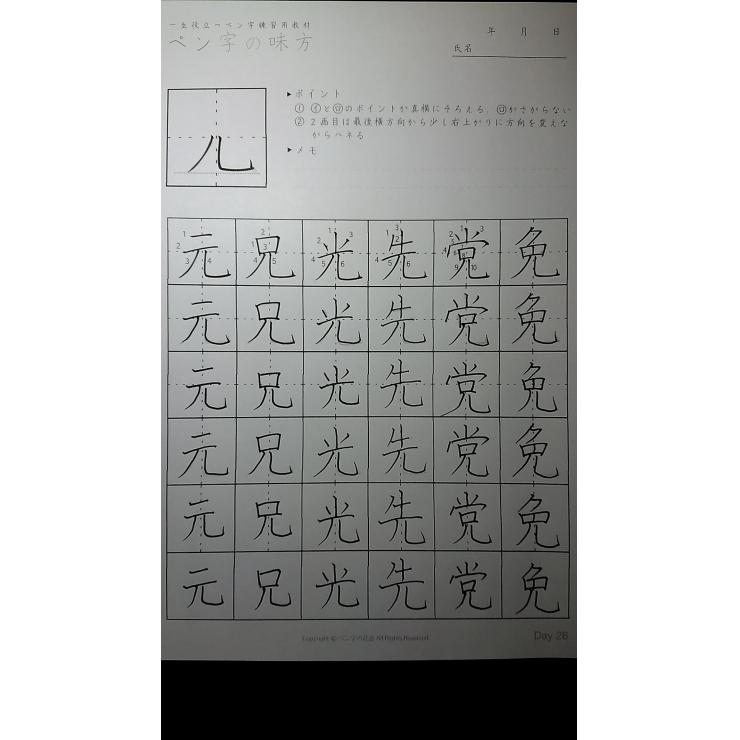 一生役立つペン字練習用教材
ペン字の味方
年 月 日
氏名
▶ポイント
① ㋑と㋺のポイントが真横にそろえる。㋺がさがらない
② 2画目は最後横方向から少し右上がりに方向を変えな
がらハネる
▶メモ
儿
元 兄 光 先 党 免
元 兄 光 先 党 免
元 兄 光 先 党 免
元 兄 光 先 党 免
元 兄 光 先 党 免
元 兄 光 先 党 免
Copyright © ペン字の花道 All Rights Reserved.
Day 26